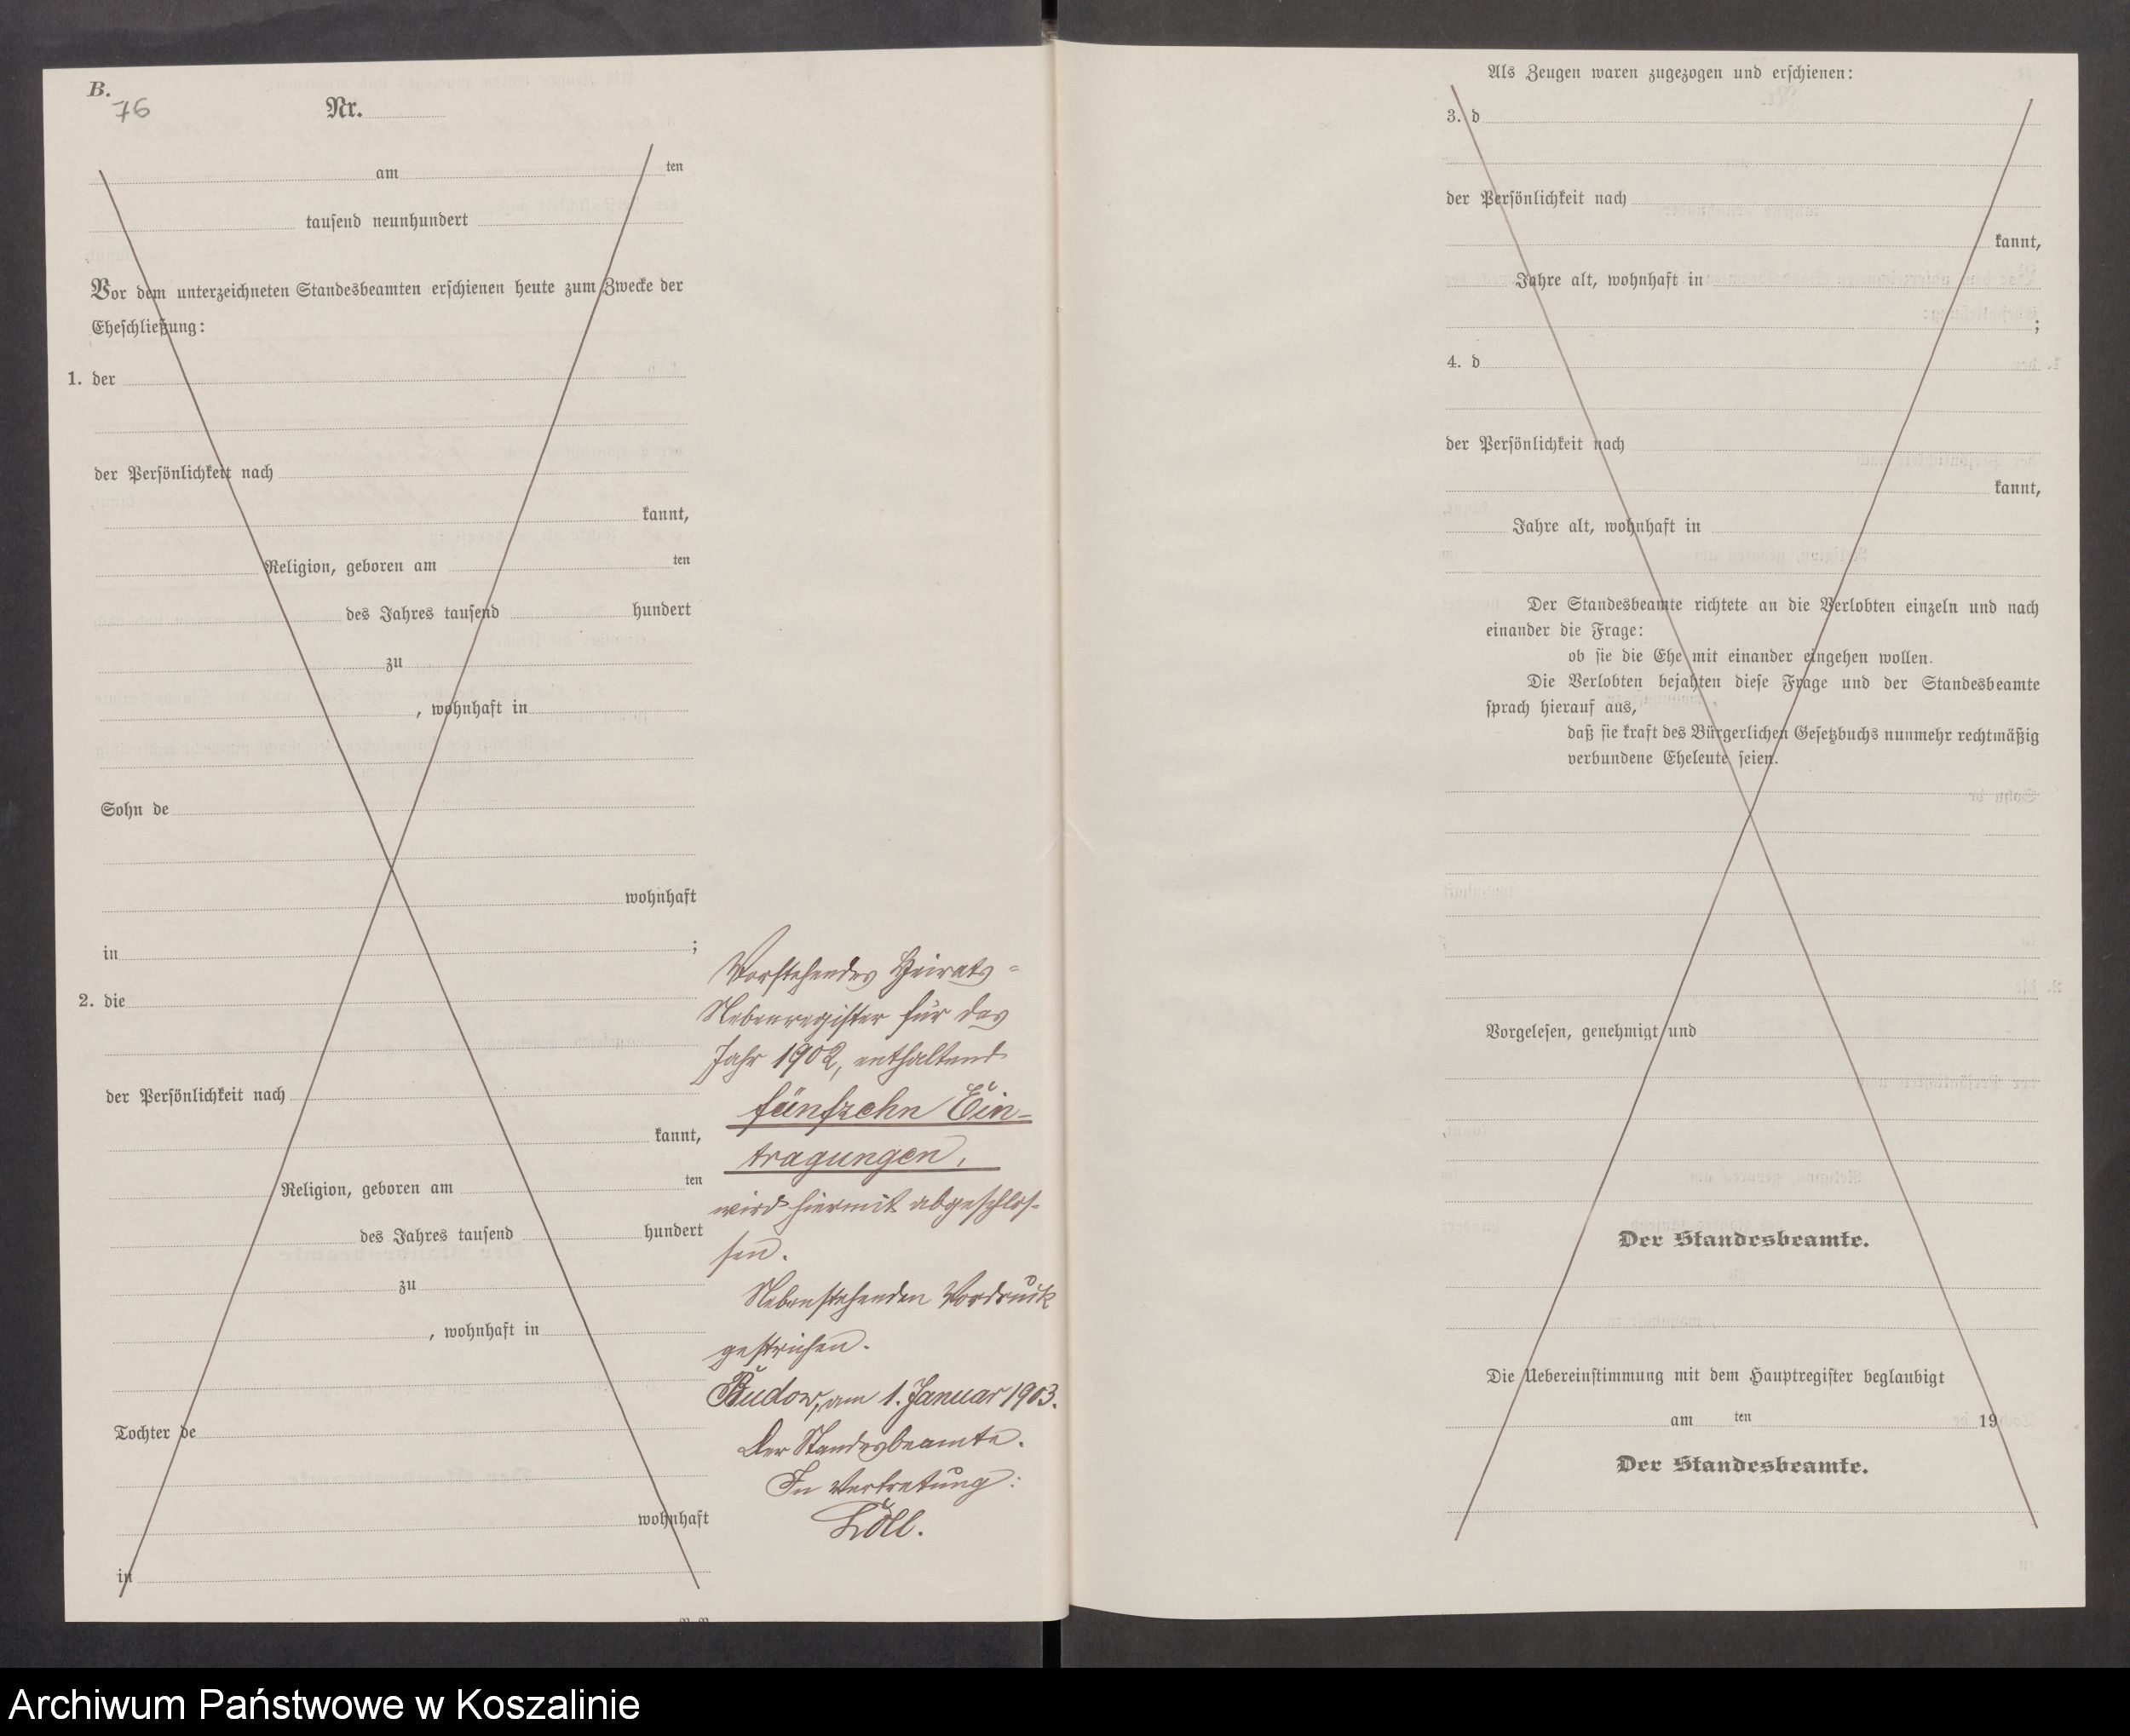 B.
76
Nr.
am ten
tausend neunhundert
Vor dem unterzeichneten Standesbeamten erschienen heute zum Zwecke der
Eheschließung:
1. der
der Persönlichkeit nach
kannt,
Religion, geboren am ten
des Jahres tausend hundert
zu
, wohnhaft in
Sohn de
wohnhaft
in ;
2. die
der Persönlichkeit nach
kannt,
Religion, geboren am ten
des Jahres tausend hundert
zu
, wohnhaft in
Tochter de
wohnhaft
in
Vorstehendes Heirats-
Nebenregister für das
Jahr 1902, enthaltend
fünfzehn Ein-
tragungen,
wird hiermit abgeschlos-
sen.
Nebenstehenden Vordruck
gestrichen.
Budow, am 1. Januar 1903.
Der Standesbeamte.
In Vertretung:
Als Zeugen waren zugezogen und erschienen:
3. d
der Persönlichkeit nach
kannt,
Jahre alt, wohnhaft in
;
4. d
der Persönlichkeit nach
kannt,
Jahre alt, wohnhaft in
Der Standesbeamte richtete an die Verlobten einzeln und nach
einander die Frage:
ob sie die Ehe mit einander eingehen wollen.
Die Verlobten bejahten diese Frage und der Standesbeamte
sprach hierauf aus,
daß sie kraft des Bürgerlichen Gesetzbuchs nunmehr rechtmäßig
verbundene Eheleute seien.
Vorgelesen, genehmigt und
Der Standesbeamte.
Die Uebereinstimmung mit dem Hauptregister beglaubigt
am ten 19
Der Standesbeamte.
Archiwum Państwowe w Koszalinie